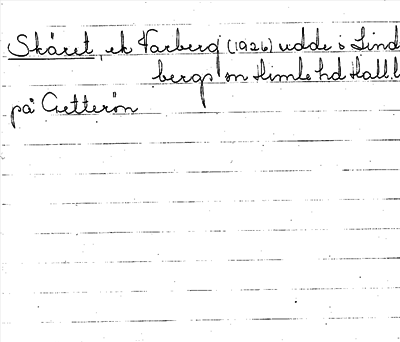 Skäret, ek Varberg (1926) udde i Lind
bergs sn Himle hd Hall. l
på Getterön